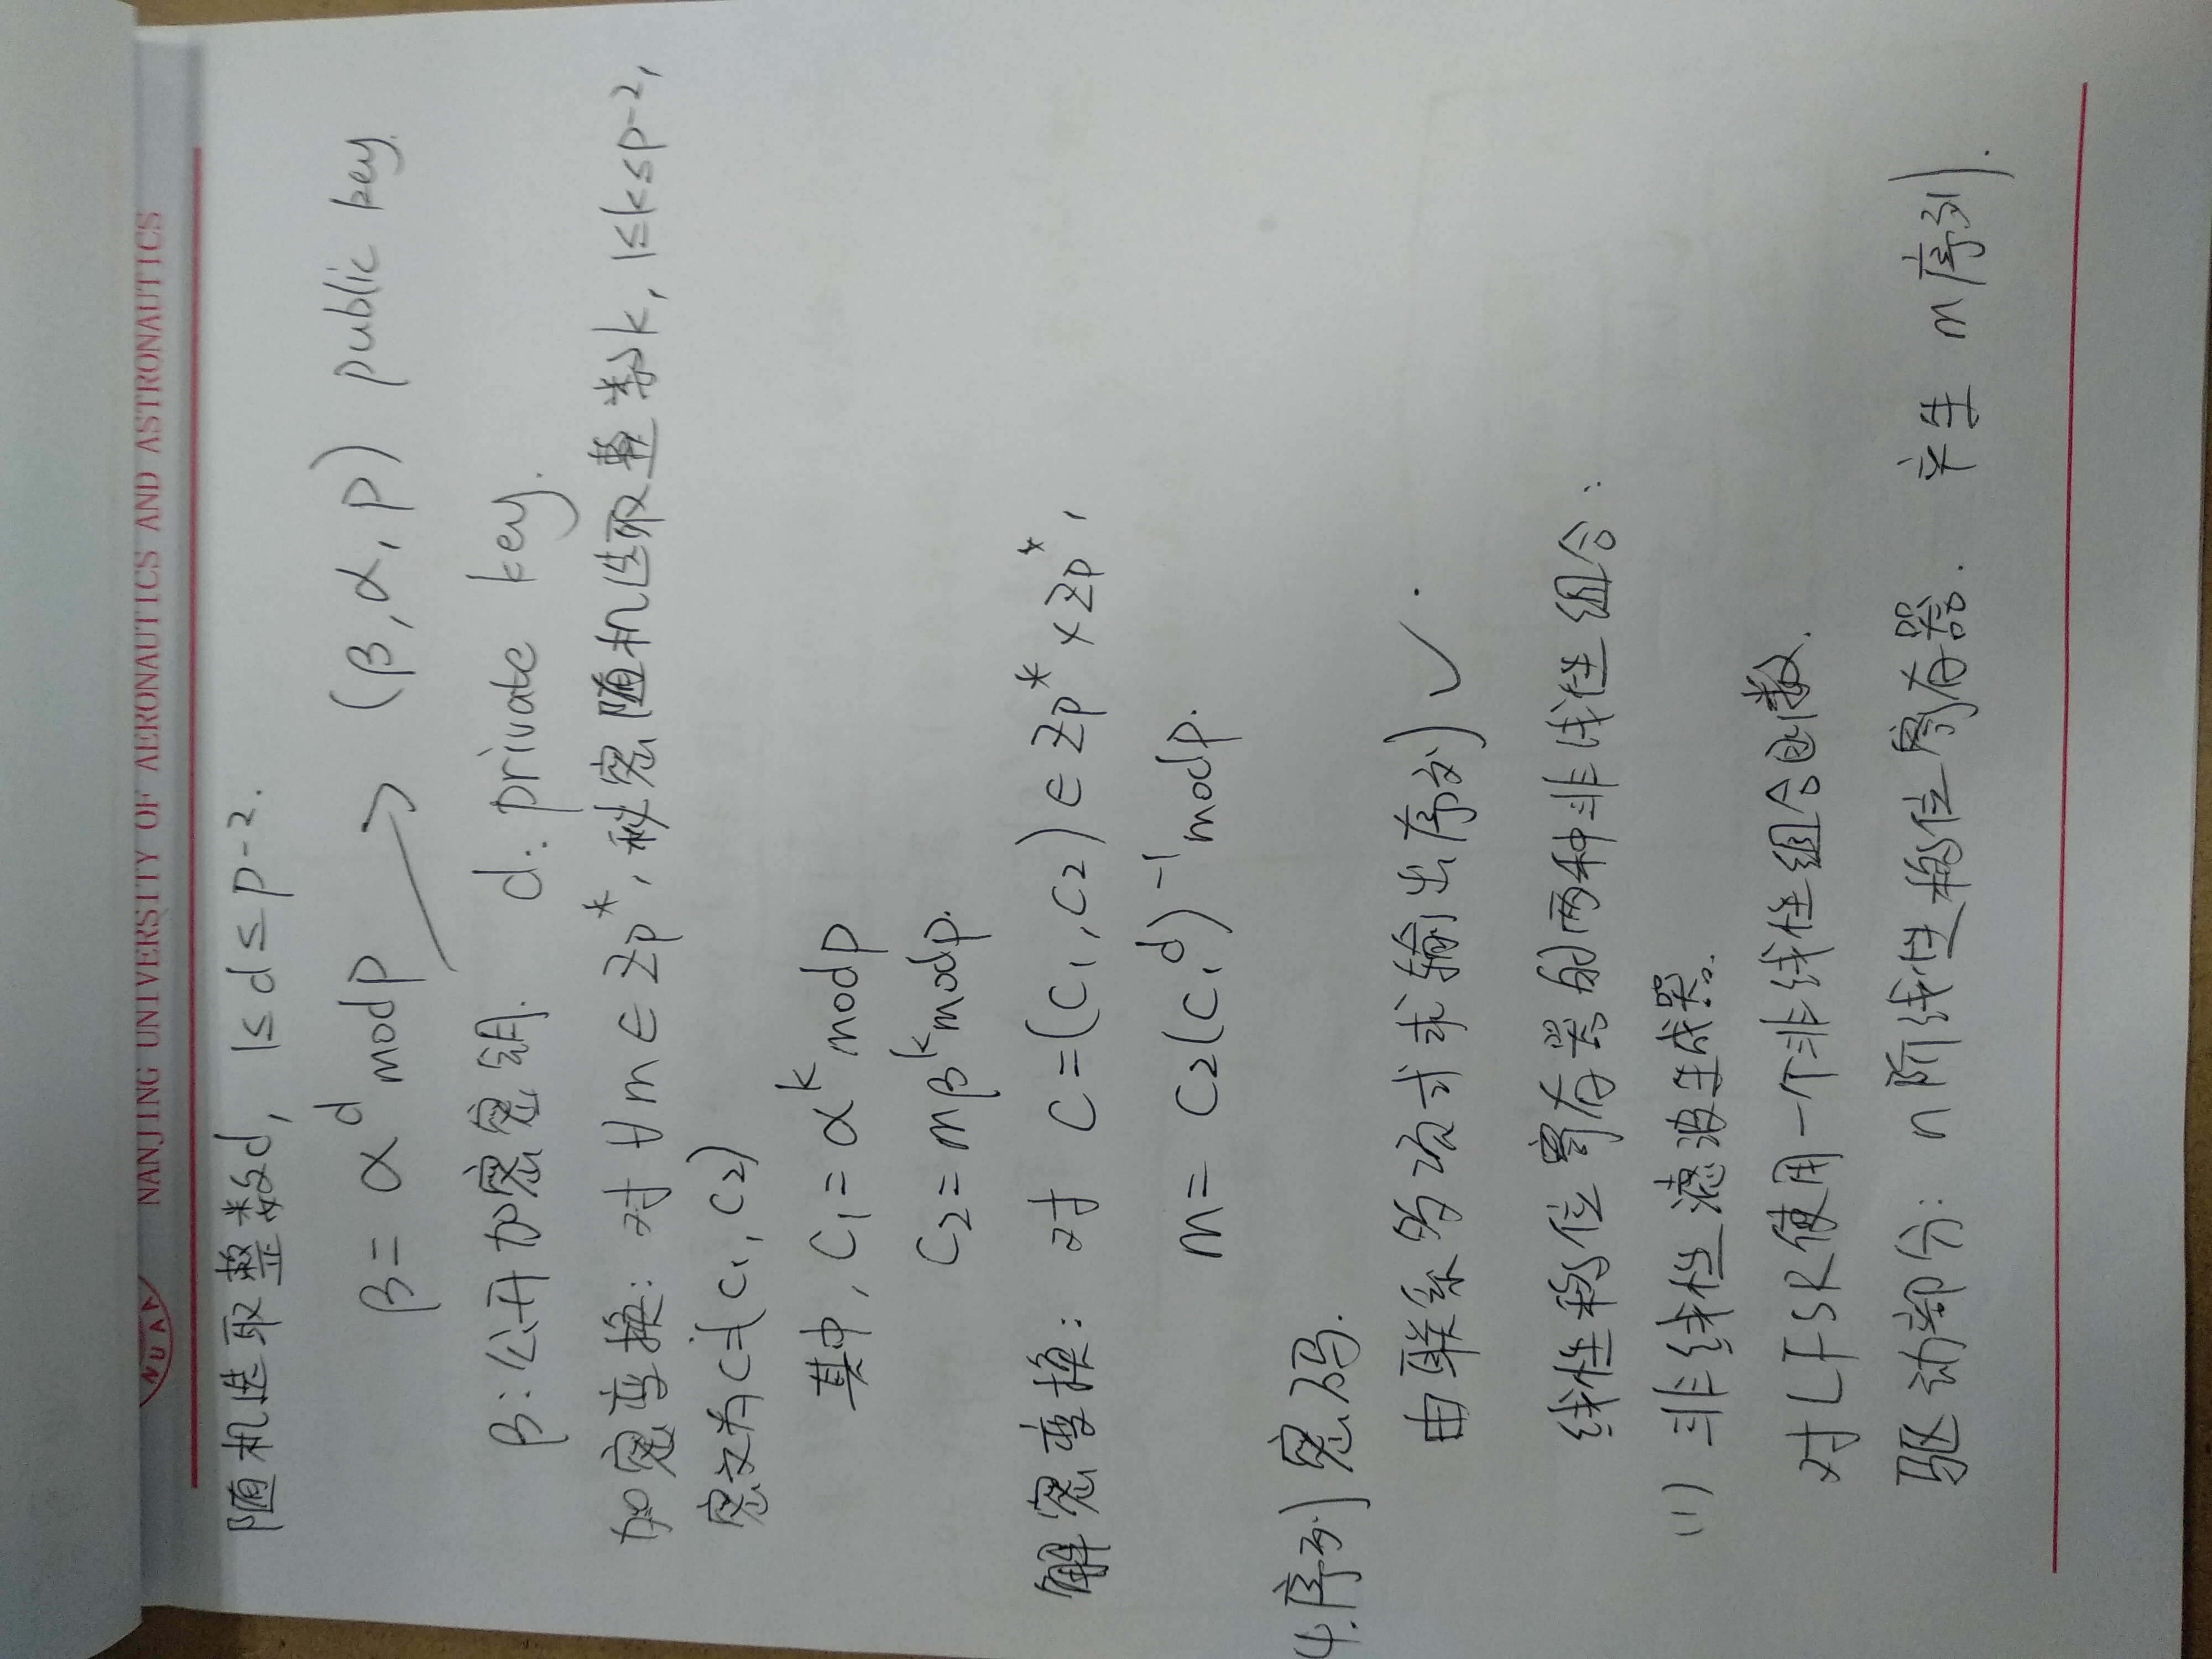 NUAA
NANJING UNIVERSITY OF AERONAUTICS AND ASTRONAUTICS
随机选取整数d, 1≤d≤p-2.
β = α^d mod p → (β, α, p) public key.
β:公开加密密钥. d: private key.
加密变换: 对 ∀m∈Zp*, 秘密随机选取整数k, 1≤k≤p-2,
密文为C=(C₁, C₂)
其中, C₁ = α^k mod p
C₂ = mβ^k mod p.
解密变换: 对 C=(C₁, C₂) ∈ Zp* × Zp*,
m = C₂(C₁^d)^-1 mod p.
4.序列密码.
由联系多项式求输出序列 ✓.
线性移位寄存器的两种非线性组合:
(1) 非线性滤波生成器.
对LFSR使用一个非线性组合函数.
驱动部分: n阶线性移位寄存器. 产生 m序列.